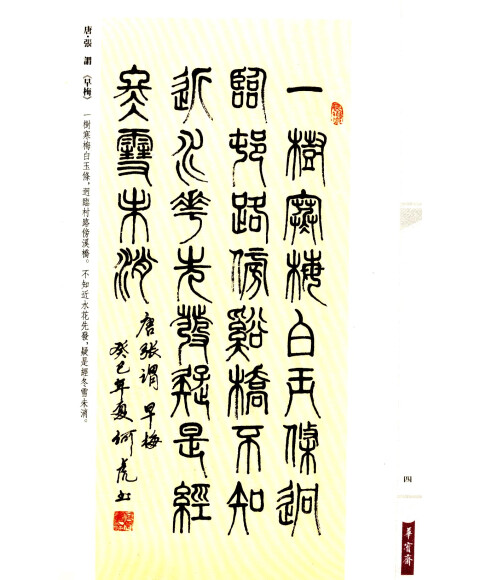 四
華寳齋
一樹寒梅白玉條迥
臨邨路傍谿橋不知
近水花先發疑是經
冬雪未消
唐張謂 早梅
癸巳年夏
唐·張 謂 《早梅》 一樹寒梅白玉條，迥臨村路傍溪橋。不知近水花先發，疑是經冬雪未消。